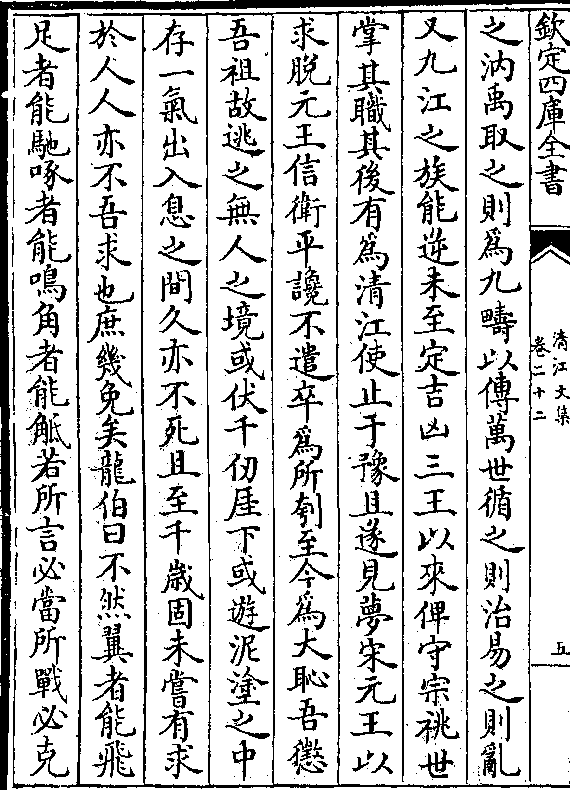 欽定四庫全書
清江文集
卷二十二
五
之汭禹取之則為九疇以傳萬世循之則治易之則亂
又九江之族能逆未至定吉凶三王以來俾守宗祧世
掌其職其後有為清江使止于豫且遂見夢宋元王以
求脱元王信衛平讒不遣卒為所刳至今為大恥吾懲
吾祖故逃之無人之境或伏千仞厓下或遊泥塗之中
存一氣出入息之間久亦不死且至千歲固未嘗有求
於人人亦不吾求也庶幾免矣龍伯曰不然翼者能飛
足者能馳啄者能鳴角者能觝若所言必當所戰必克